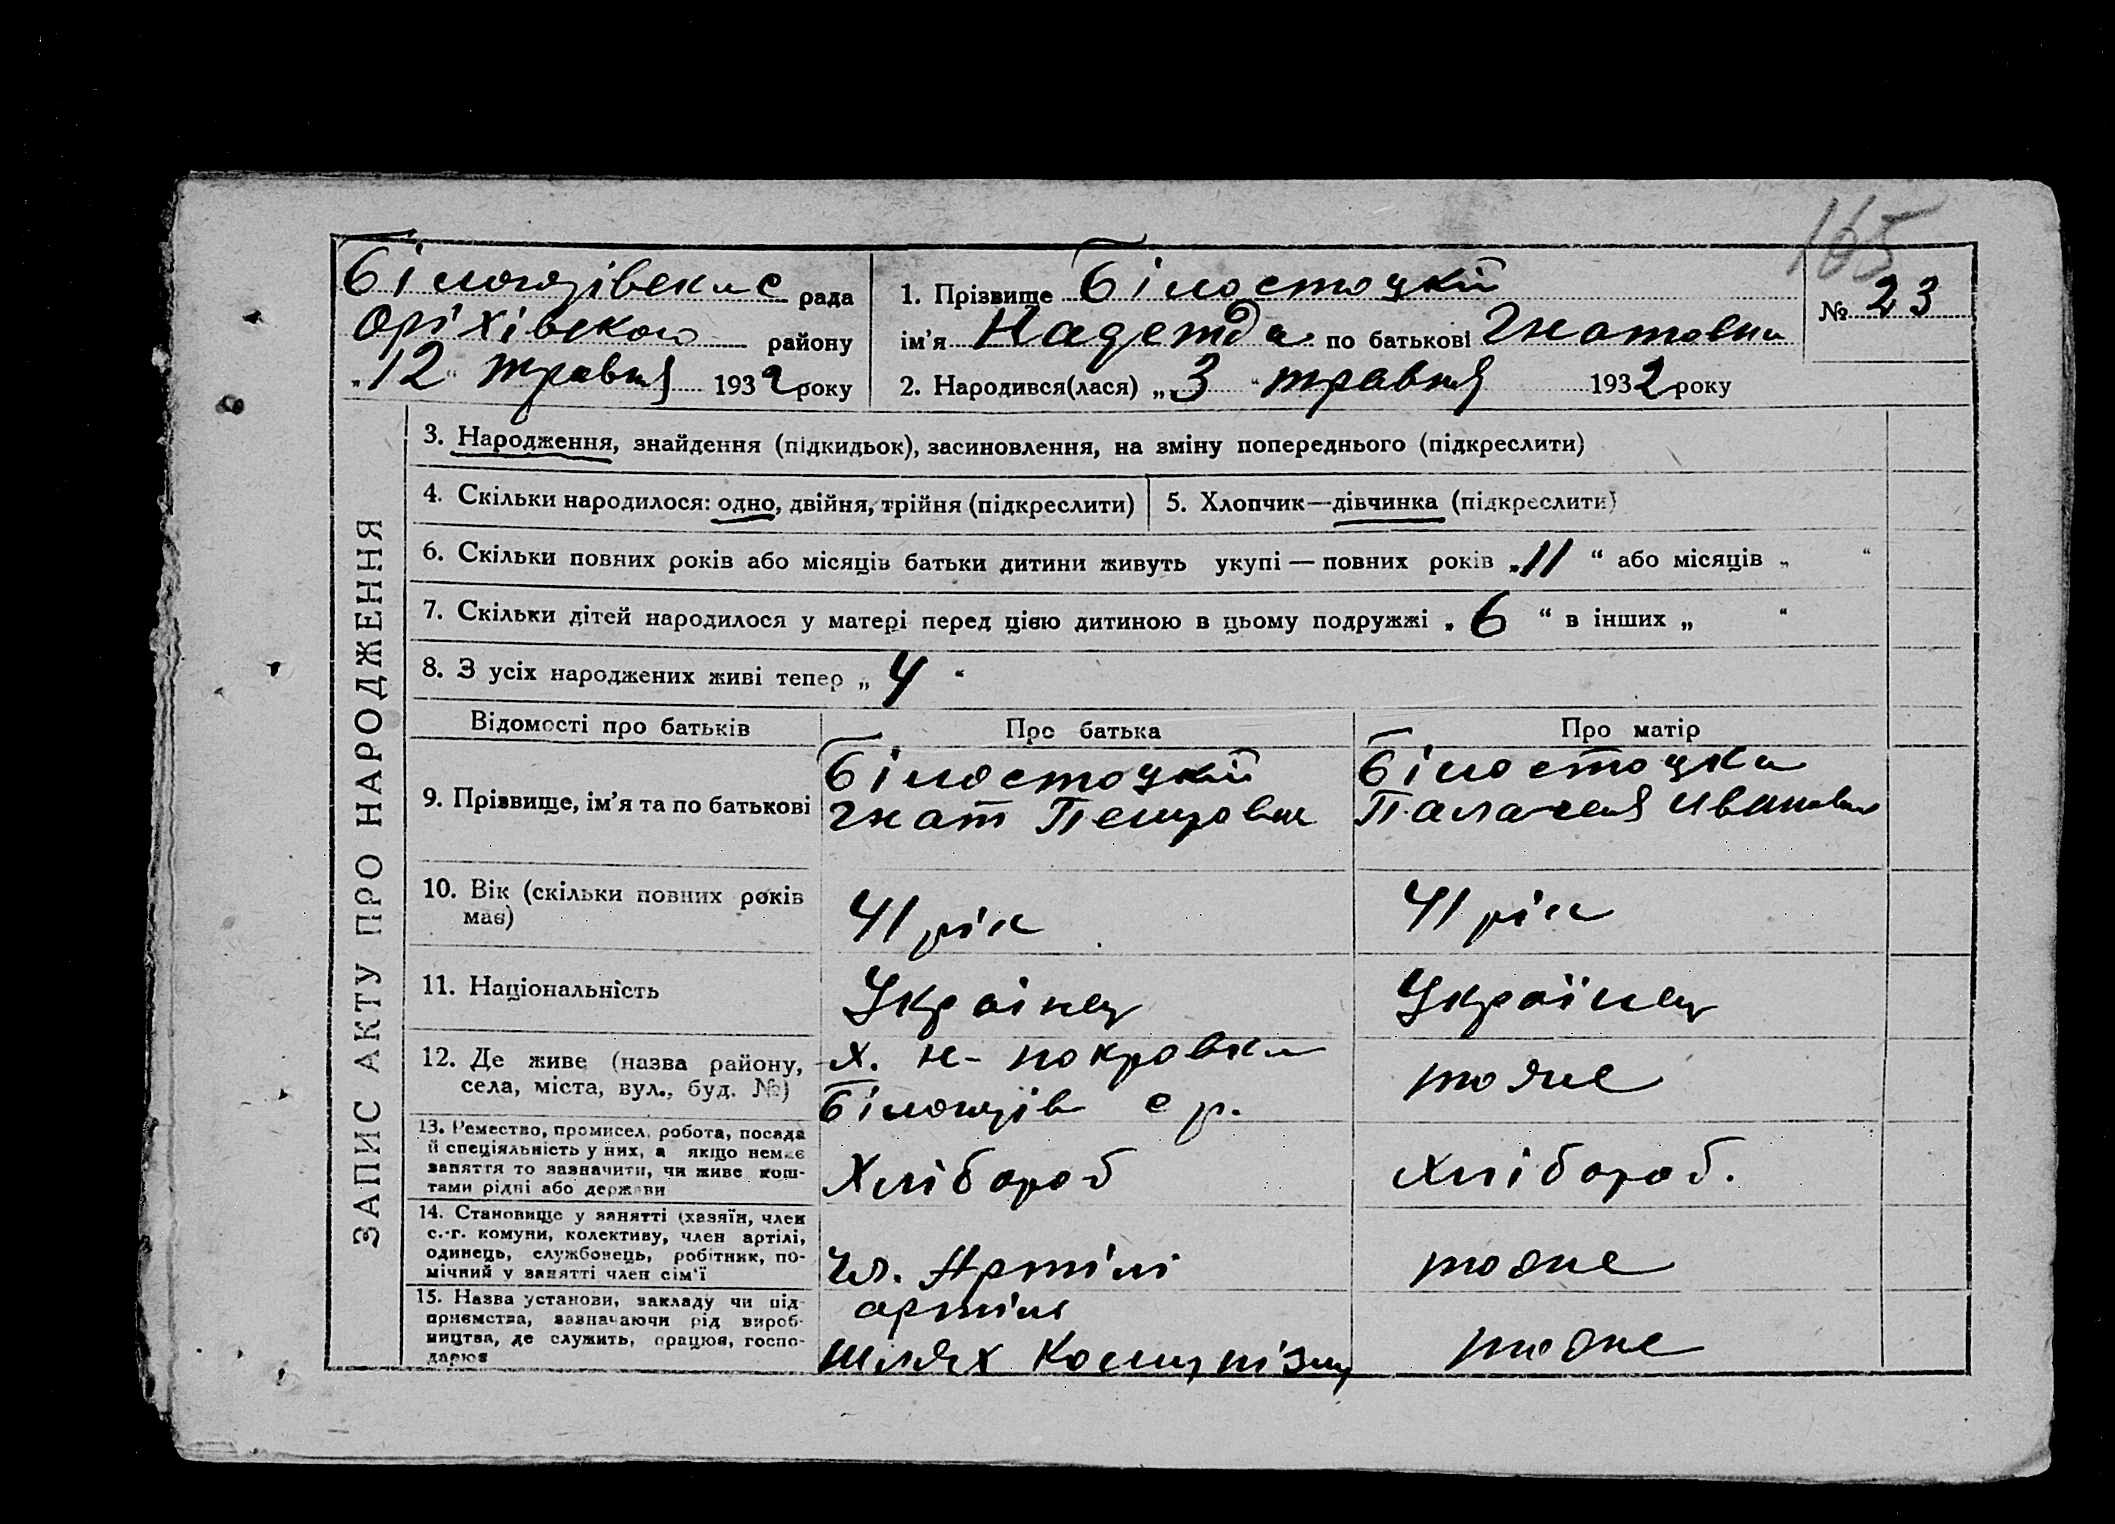 165
Білогірівське рада
Оріхівского району
„12“ травня 1932 року
1. Прізвище Білостоцкій
ім’я Надежда по батькові Гнатовна
№ 23
2. Народився(лася) „3“ травня 1932 року
ЗАПИС АКТУ ПРО НАРОДЖЕННЯ
3. Народження, знайдення (підкидьок), засиновлення, на зміну попереднього (підкреслити)
4. Скільки народилося: одно, двійня, трійня (підкреслити)
5. Хлопчик—дівчинка (підкреслити)
6. Скільки повних років або місяців батьки дитини живуть укупі — повних років „11“ або місяців „ “
7. Скільки дітей народилося у матері перед цією дитиною в цьому подружжі „6“ в інших „ “
8. З усіх народжених живі тепер „4“
Відомості про батьків
Про батька
Про матір
9. Прізвище, ім’я та по батькові
Білостоцкій
Гнат Петрович
Білостоцка
Палагея Ивановна
10. Вік (скільки повних років
має)
41 рік
41 рік
11. Національність
Українец
Українец
12. Де живе (назва району,
села, міста, вул., буд. №)
х. Н-покровка
с р.
тоже
13. Ремество, промисел, робота, посада
й спеціяльність у них, а якщо немає
заняття то зазначити, чи живе кош-
тами рідні або держави
Хлібороб
Хлібороб.
14. Становище у занятті (хазяїн, член
с.-г. комуни, колективу, член артілі,
одинець, службовець, робітник, по-
мічний у занятті член сім’ї
Чл. Артілі
тоже
15. Назва установи, закладу чи під-
приємства, зазначаючи рід вироб-
ництва, де служить, працює, госпо-
дарює
артіль
Шлях Комунізму
тоже